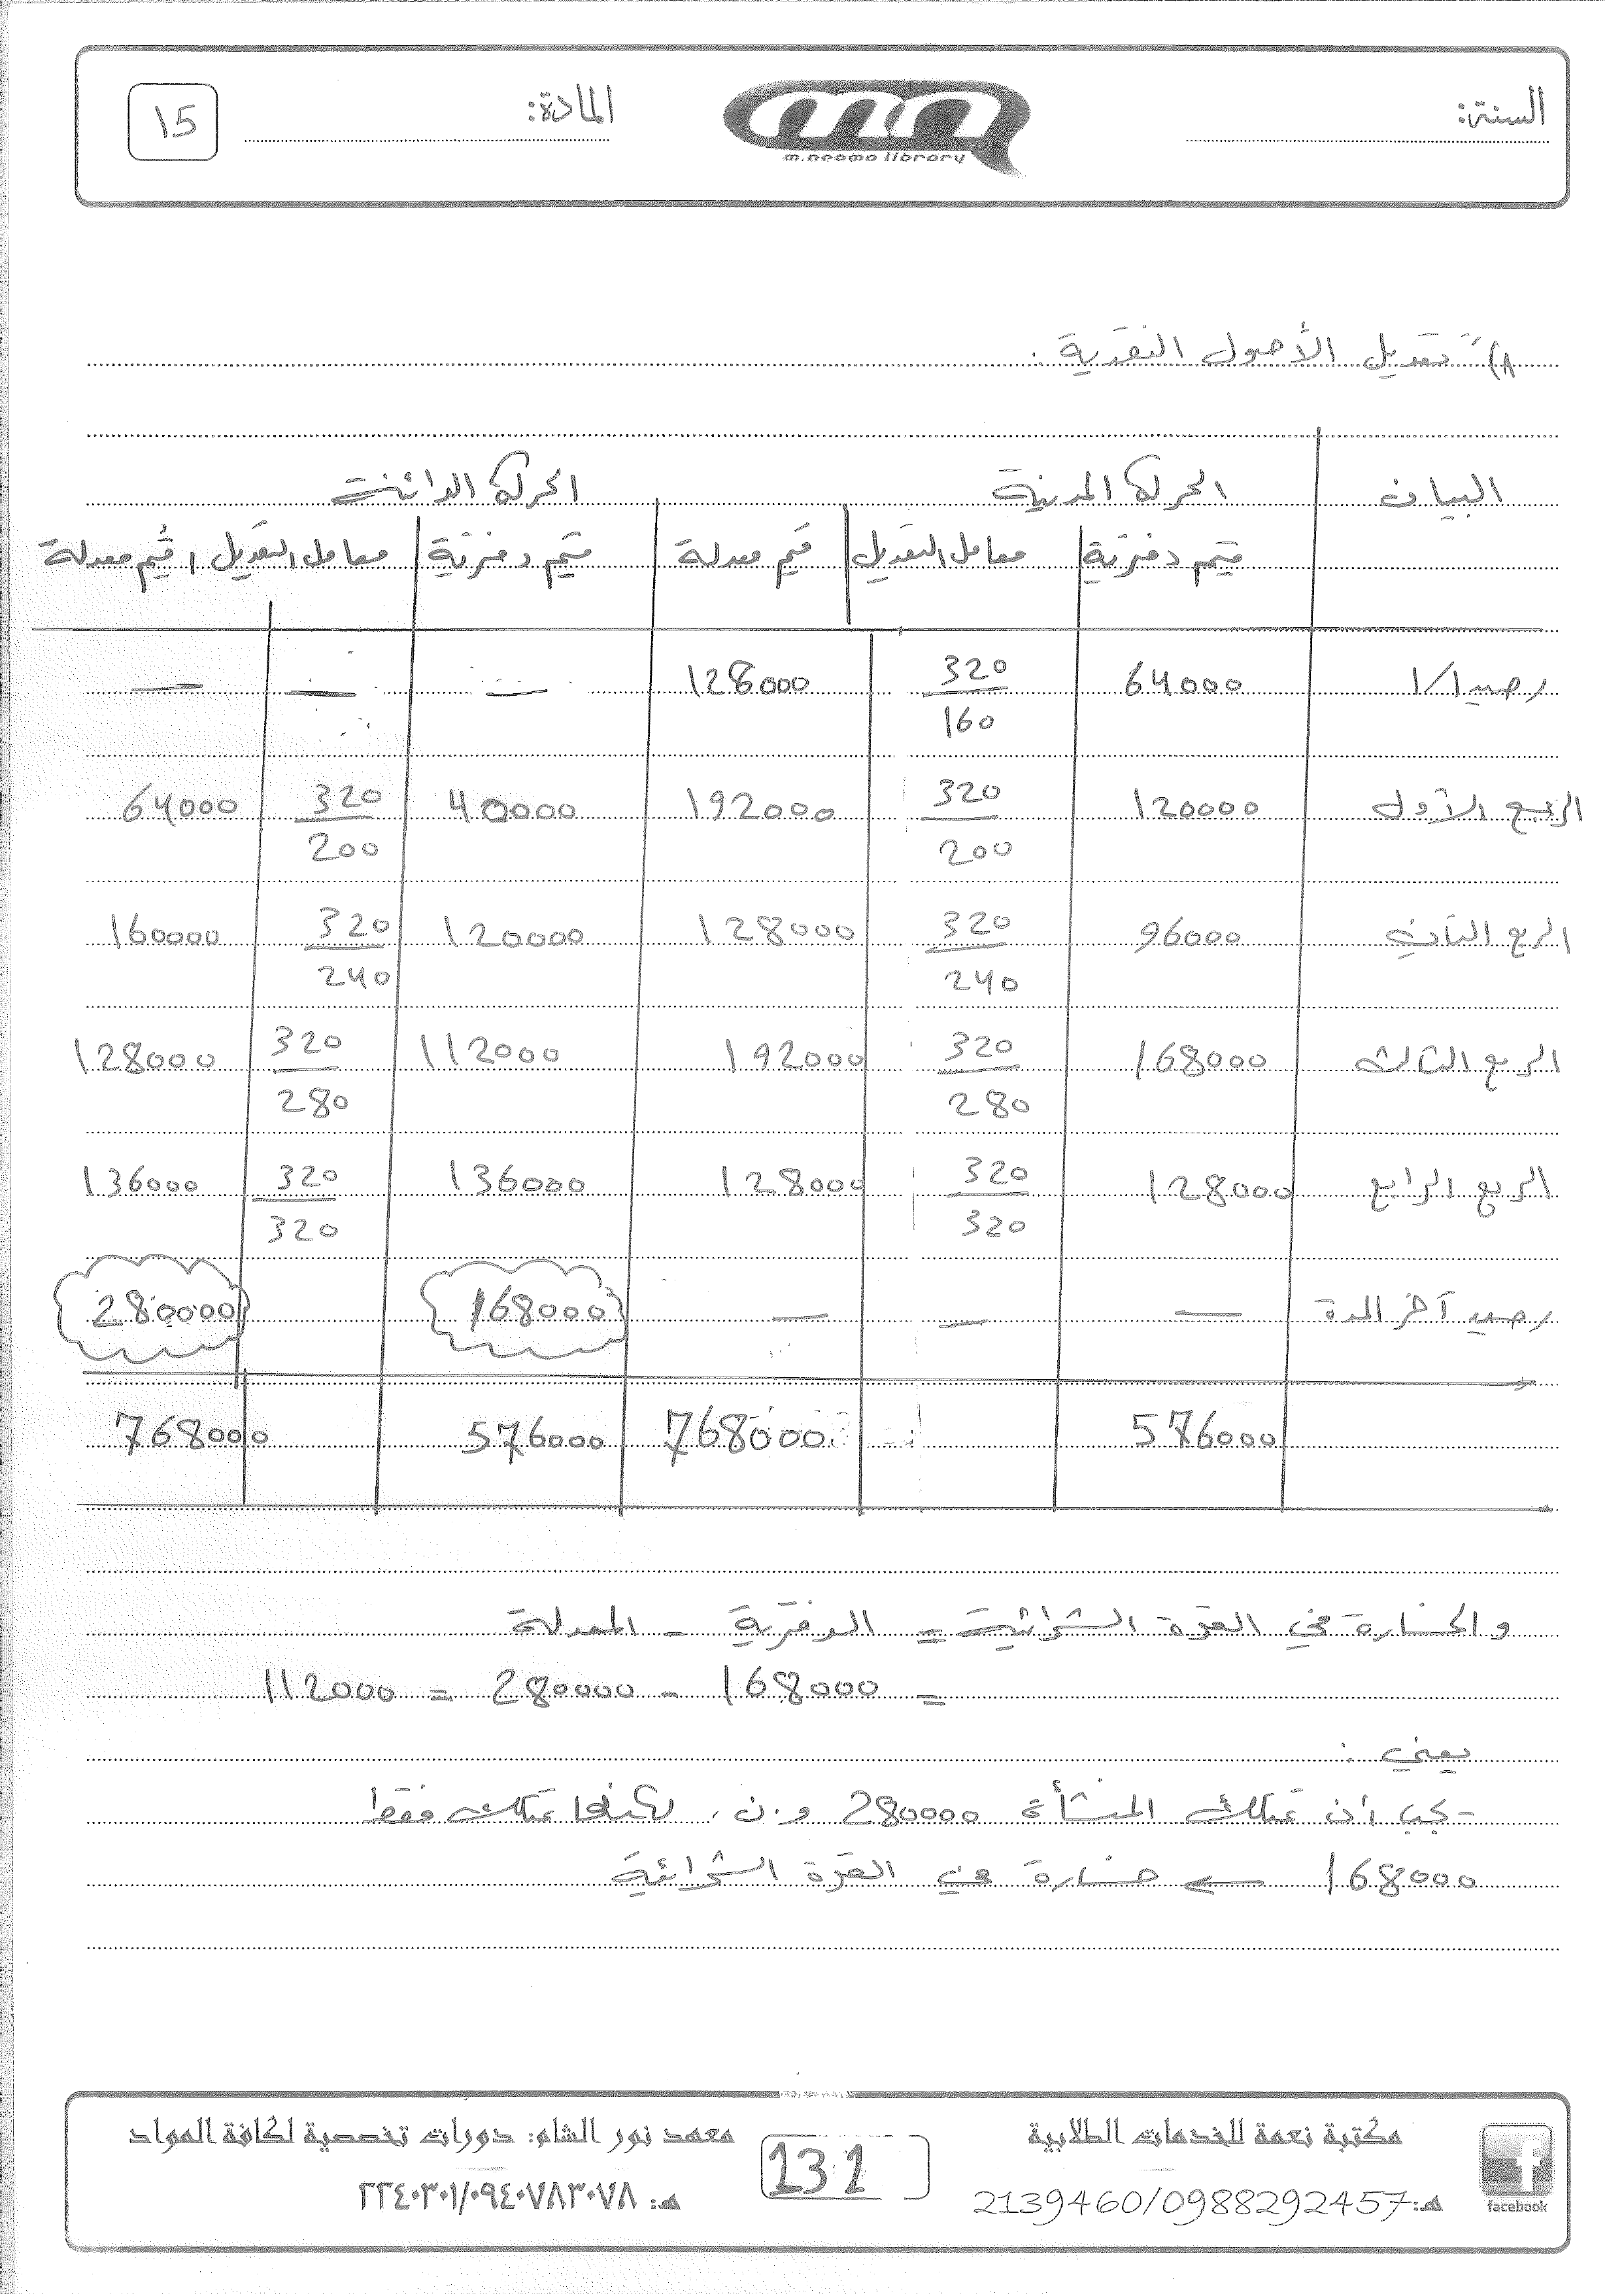 السنة:
المادة:
15
m.neama library
A) تعديل الأصول النقدية:
البيان الحركة المدينة الحركة الدائنة
قيم دفترية معامل التعديل قيم معدلة قيم دفترية معامل التعديل قيم معدلة
رصيد 1/1 64000 320/160 128000 — — —
الربع الأول 120000 320/200 192000 40000 320/200 64000
الربع الثاني 96000 320/240 128000 120000 320/240 160000
الربع الثالث 168000 320/280 192000 112000 320/280 128000
الربع الرابع 128000 320/320 128000 136000 320/320 136000
رصيد آخر المدة — — — 168000 280000
576000 768000 576000 768000
والخسارة في القوة الشرائية = الدفترية - المعدلة
= 168000 - 280000 = 112000
يعني:
- يجب أن تمتلك المنشأة 280000 و.ن، لكنها تمتلك فقط
168000 ← خسارة في القوة الشرائية
مكتبة نعمة للخدمات الطلابية
هـ: 2139460/0988292457
facebook
131
معهد نور الشام: دورات تخصصية لكافة المواد
هـ: ٢٢٤٠٣٠١/٠٩٤٠٧٨٣٠٧٨